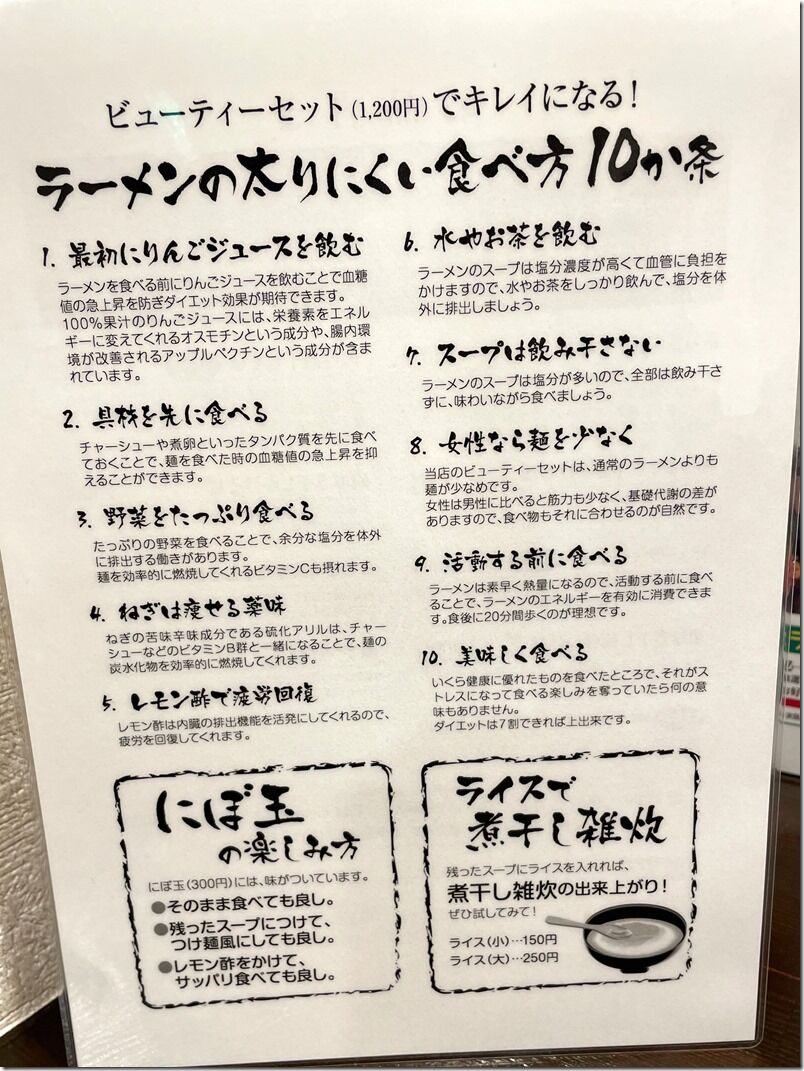 ビューティーセット(1,200円)でキレイになる!
ラーメンの太りにくい食べ方10か条
1. 最初にりんごジュースを飲む
ラーメンを食べる前にりんごジュースを飲むことで血糖
値の急上昇を防ぎダイエット効果が期待できます。
100%果汁のりんごジュースには、栄養素をエネル
ギーに変えてくれるオスモチンという成分や、腸内環
境が改善されるアップルペクチンという成分が含ま
れています。
2. 具材を先に食べる
チャーシューや煮卵といったタンパク質を先に食べ
ておくことで、麺を食べた時の血糖値の急上昇を抑
えることができます。
3. 野菜をたっぷり食べる
たっぷりの野菜を食べることで、余分な塩分を体外
に排出する働きがあります。
麺を効率的に燃焼してくれるビタミンCも摂れます。
4. ねぎは痩せる薬味
ねぎの苦味辛味成分である硫化アリルは、チャー
シューなどのビタミンB群と一緒になることで、麺の
炭水化物を効率的に燃焼してくれます。
5. レモン酢で疲労回復
レモン酢は内臓の排出機能を活発にしてくれるので、
疲労を回復してくれます。
6. 水やお茶を飲む
ラーメンのスープは塩分濃度が高くて血管に負担を
かけますので、水やお茶をしっかり飲んで、塩分を体
外に排出しましょう。
7. スープは飲み干さない
ラーメンのスープは塩分が多いので、全部は飲み干さ
ずに、味わいながら食べましょう。
8. 女性なら麺を少なく
当店のビューティーセットは、通常のラーメンよりも
麺が少なめです。
女性は男性に比べると筋力も少なく、基礎代謝の差が
ありますので、食べ物もそれに合わせるのが自然です。
9. 活動する前に食べる
ラーメンは素早く熱量になるので、活動する前に食べ
ることで、ラーメンのエネルギーを有効に消費できま
す。食後に20分間歩くのが理想です。
10. 美味しく食べる
いくら健康に優れたものを食べたところで、それがス
トレスになって食べる楽しみを奪っていたら何の意
味もありません。
ダイエットは7割できれば上出来です。
にぼ玉
の楽しみ方
にぼ玉(300円)には、味がついています。
●そのまま食べても良し。
●残ったスープにつけて、
つけ麺風にしても良し。
●レモン酢をかけて、
サッパリ食べても良し。
ライスで
煮干し雑炊
残ったスープにライスを入れれば、
煮干し雑炊の出来上がり!
ぜひ試してみて!
ライス(小)…150円
ライス(大)…250円